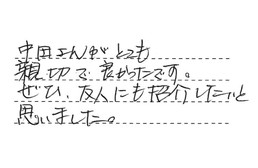 中田さんがとても
親切で良かったです。
ぜひ、友人にも紹介したいと
思いました。